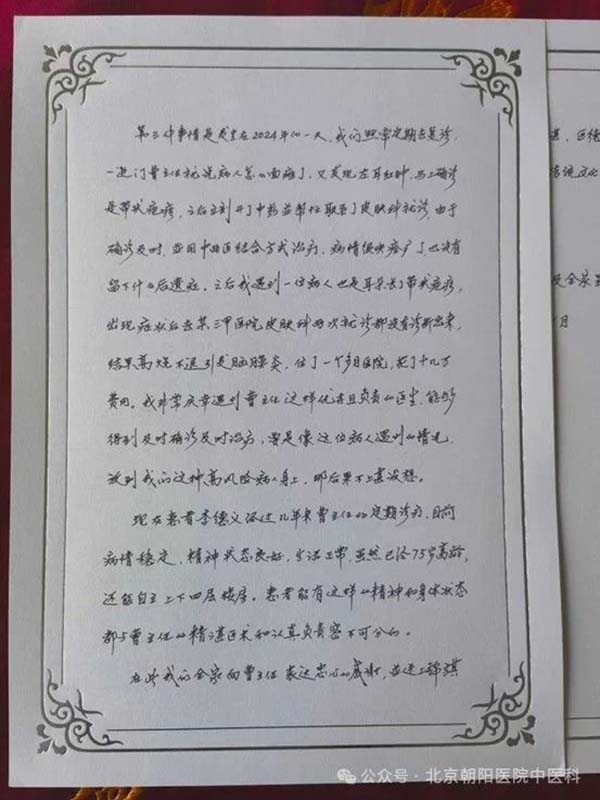 第三件事情是发生在2024年的一天，我们照常定期去复诊，
一进门曹主任就说病人怎么面瘫了，又发现左耳红肿，马上确诊
是带状疱疹，之后立刻开了中药并帮忙联系了皮肤科就诊，由于
确诊及时，并用中西医结合方式治疗，病情很快痊疗了也没有
留下什么后遗症。之后我遇到一位病人也是耳朵长了带状疱疹，
出现症状后去某三甲医院皮肤科两次就诊都没有诊断出来，
结果高烧不退引发脑膜炎，住了一个多月医院，花了十几万
费用。我非常庆幸遇到曹主任这样优秀且负责的医生，能够
得到及时确诊及时治疗，要是像这位病人遇到的情况，
放到我们这种高风险病人身上，那后果不堪设想。
现在患者李德义经过几年来曹主任的定期诊疗，目前
病情稳定，精神状态良好，生活正常，虽然已经75岁高龄，
还能自主上下四层楼房。患者能有这样的精神和身体状态
都与曹主任的精湛医术和认真负责密不可分的。
在此我们全家向曹主任表达衷心的感谢，并送上锦旗
月
公众号·北京朝阳医院中医科